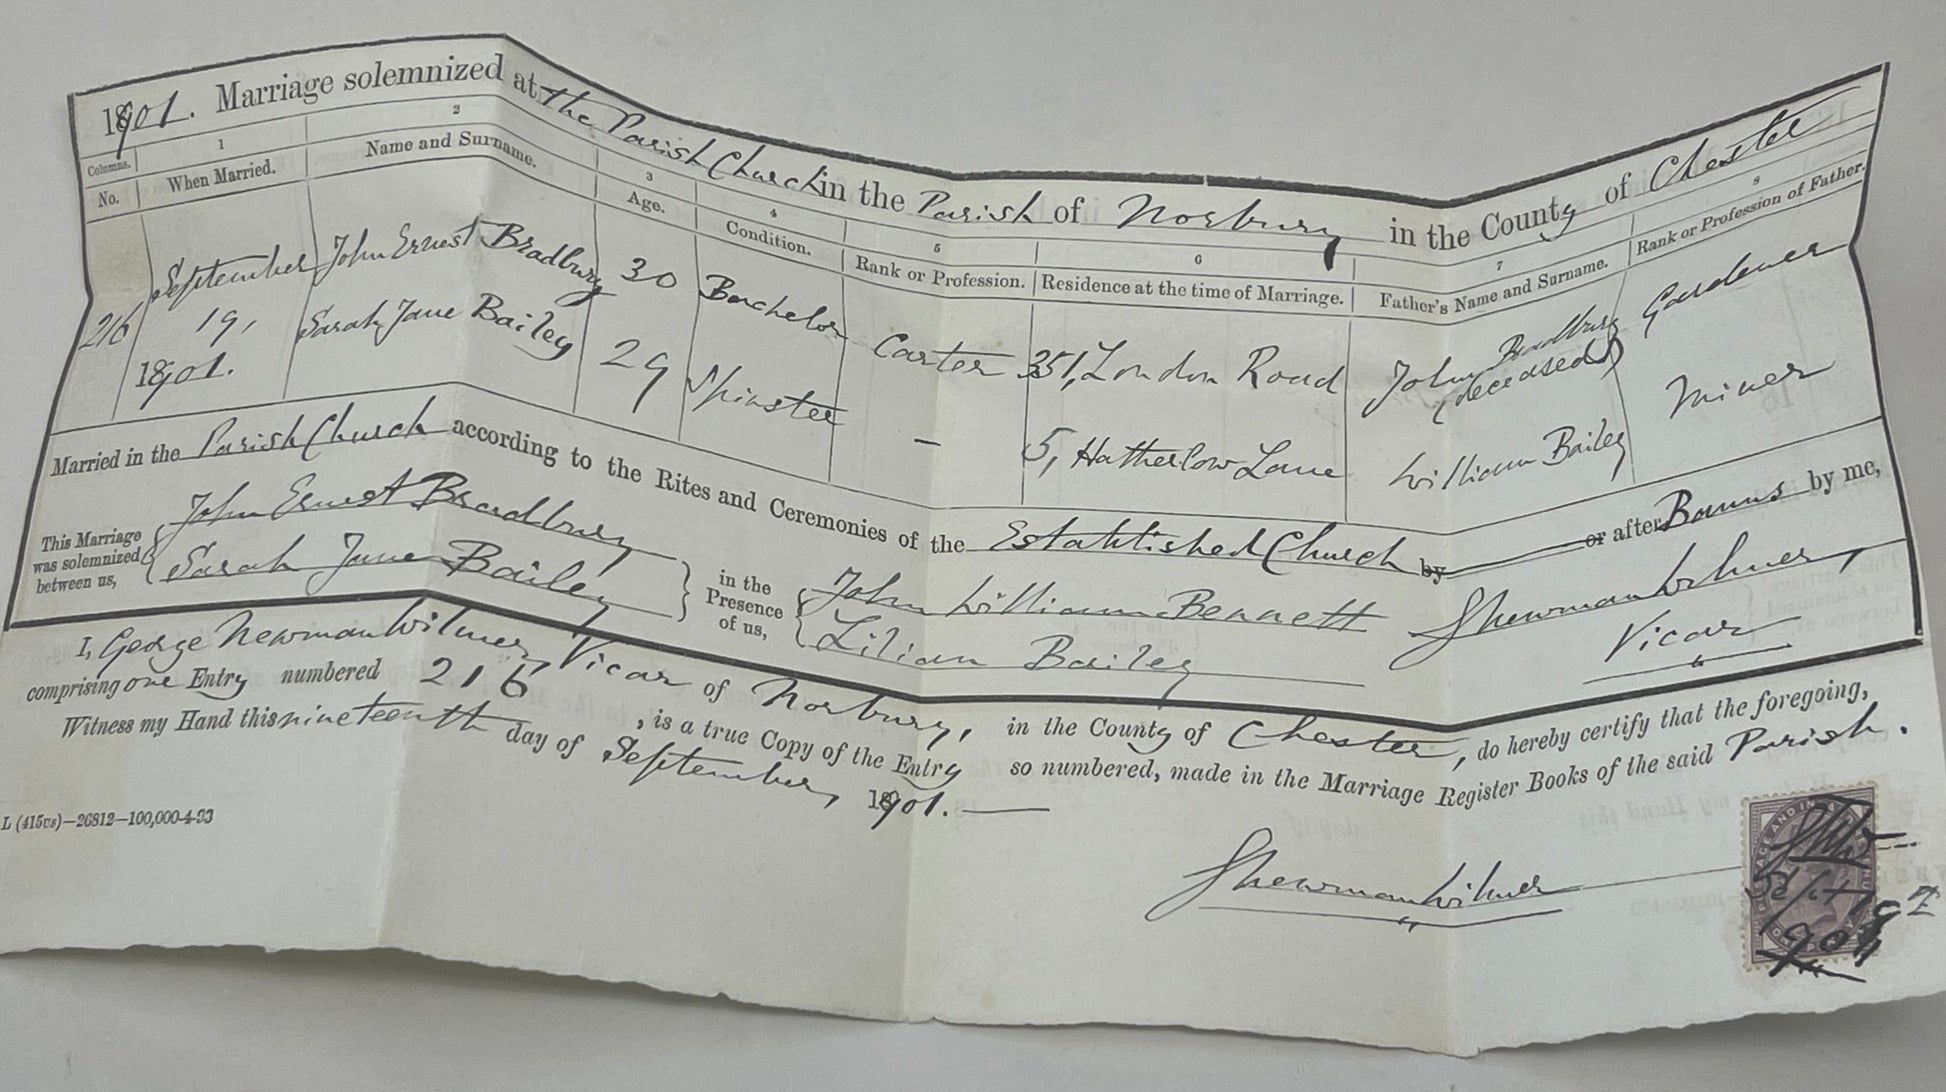 1901. Marriage solemnized at the Parish Church in the Parish of Norbury in the County of Chester
Columns. 1 2 3 4 5 6 7 8
No. When Married. Name and Surname. Age. Condition. Rank or Profession. Residence at the time of Marriage. Father's Name and Surname. Rank or Profession of Father.
216 September 19, 1901. John Ernest Bradbury 30 Bachelor Carter 351, London Road John Bradbury (deceased) Gardener
Sarah Jane Bailey 29 Spinster - 5, Hatherlow Lane William Bailey Miner
Married in the Parish Church according to the Rites and Ceremonies of the Established Church by or after Banns by me,
This Marriage was solemnized between us, John Ernest Bradbury Sarah Jane Bailey in the Presence of us, John William Bennett Lilian Bailey GNewman Wilmer Vicar
I, George Newman Wilmer, Vicar of Norbury, in the County of Chester, do hereby certify that the foregoing,
comprising one Entry numbered 216, is a true Copy of the Entry so numbered, made in the Marriage Register Books of the said Parish.
Witness my Hand this nineteenth day of September, 1901.
GNewman Wilmer
L (415vs)—26812—100,000-4-93